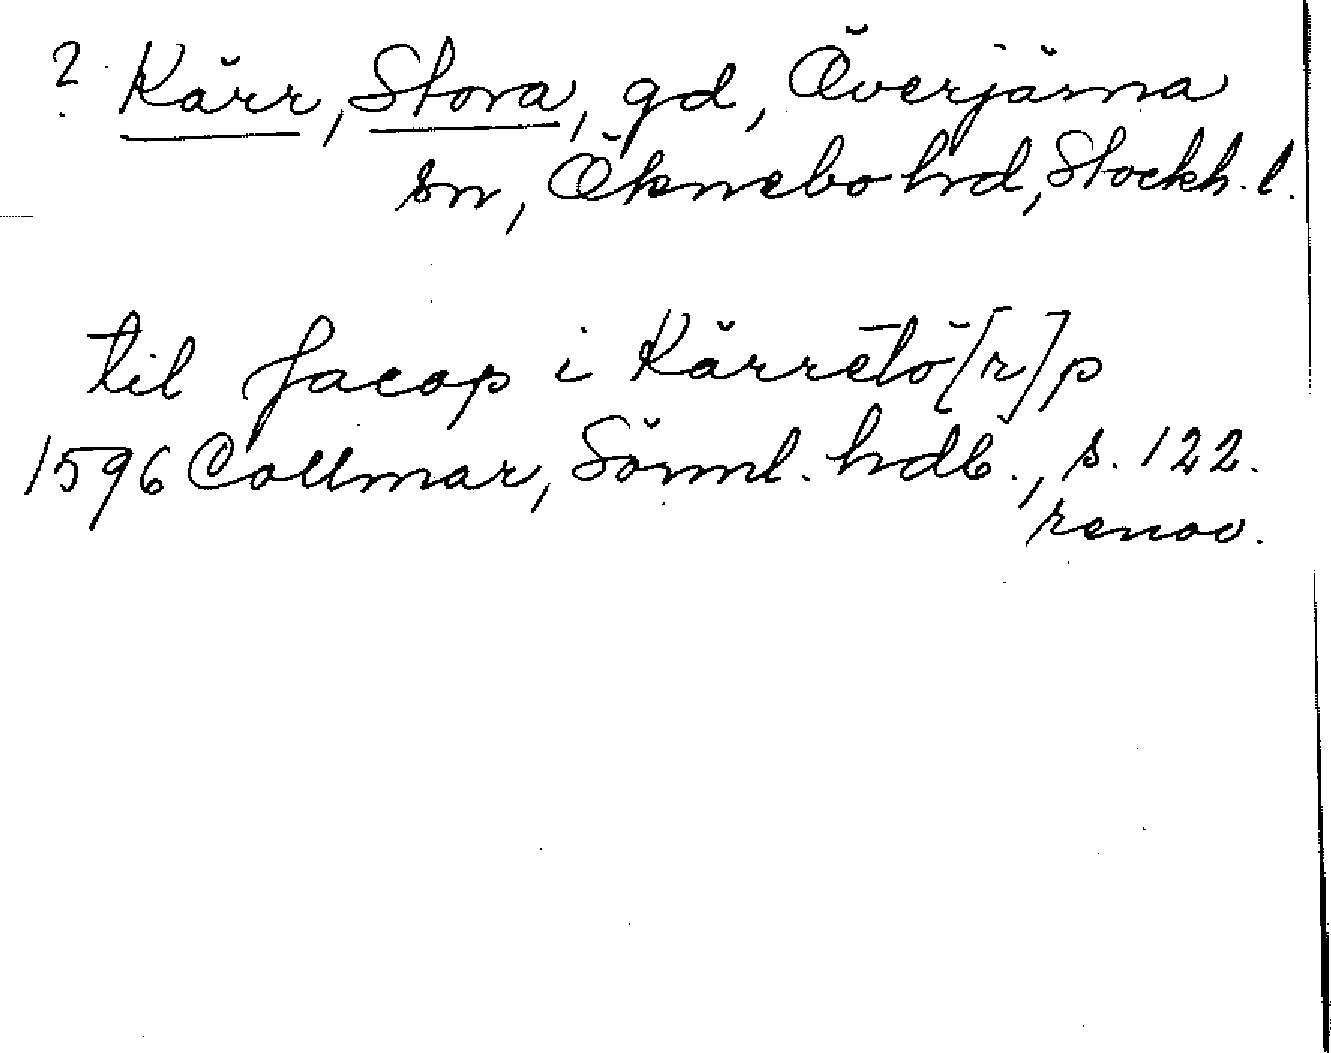 ? Kärr, Stora, gd, Överjärna
sn, Öknebo hd, Stockh. l.
til Jacop i Kärretö[r]p
1596 Collmar, Sörml. hdb., s. 122.
renov.